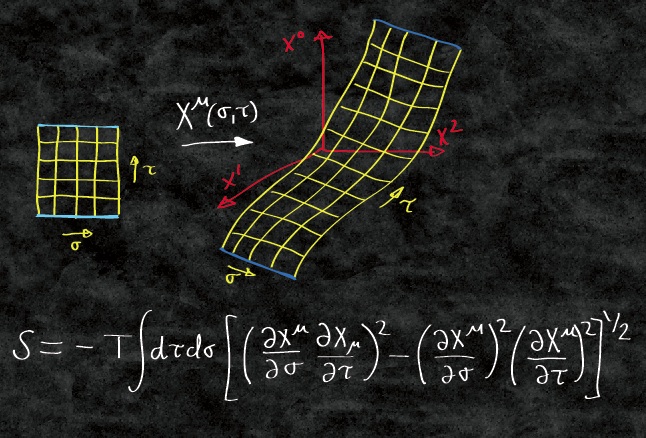 X⁰
X^μ(σ,τ)
X²
τ
X¹
τ
σ
σ
S = - T ∫dτdσ [(∂X^μ/∂σ ∂X_μ/∂τ)² - (∂X^μ/∂σ)² (∂X^μ/∂τ)²]^1/2